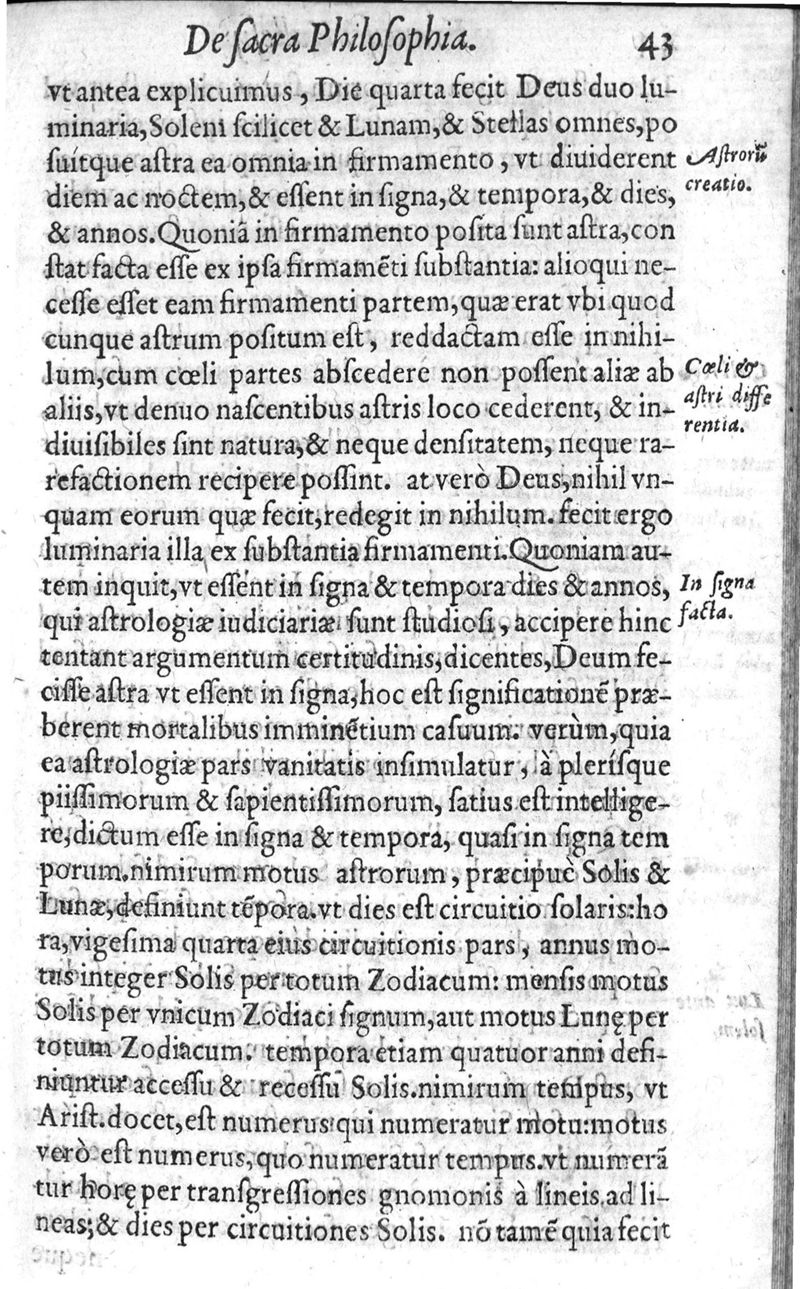 De ſacra Philoſophia. 43
vt antea explicuimus, Die quarta fecit Deus duo lu-
minaria, Solem ſcilicet & Lunam, & Stellas omnes, po
ſuítque aſtra ea omnia in firmamento, vt diuiderent
Aſtrorũ
diem ac noctem, & eſſent in ſigna, & tempora, & dies,
creatio.
& annos. Quoniã in firmamento poſita ſunt aſtra, con
ſtat facta eſſe ex ipſa firmamẽti ſubſtantia: alioqui ne-
ceſſe eſſet eam firmamenti partem, quæ erat vbi quod
cunque aſtrum poſitum eſt, reddactam eſſe in nihi-
lum, cùm cœli partes abſcedere non poſſent aliæ ab
Cœli &
aliis, vt denuo naſcentibus aſtris loco cederent, & in-
aſtri diffe
diuiſibiles ſint natura, & neque denſitatem, neque ra-
rentia.
refactionem recipere poſſint. at verò Deus, nihil vn-
quam eorum quæ fecit, redegit in nihilum. fecit ergo
luminaria illa ex ſubſtantia firmamenti. Quoniam au-
tem inquit, vt eſſent in ſigna & tempora dies & annos,
In ſigna
qui aſtrologiæ iudiciariæ ſunt ſtudioſi, accipere hinc
facta.
tentant argumentum certitudinis, dicentes, Deum fe-
ciſſe aſtra vt eſſent in ſigna, hoc eſt ſignificationẽ præ-
berent mortalibus imminẽtium caſuum. verùm, quia
ea aſtrologiæ pars vanitatis inſimulatur, à pleríſque
piiſſimorum & ſapientiſſimorum, ſatius eſt intellige-
re, dictum eſſe in ſigna & tempora, quaſi in ſigna tem
porum. nimirum motus aſtrorum, præcipuè Solis &
Lunæ, definiunt tẽpora. vt dies eſt circuitio ſolaris: ho
ra, vigeſima quarta eius circuitionis pars, annus mo-
tus integer Solis per totum Zodiacum: menſis motus
Solis per vnicum Zodiaci ſignum, aut motus Lunę per
totum Zodiacum. tempora etiam quatuor anni defi-
niuntur acceſſu & receſſu Solis. nimirum tempus, vt
Ariſt. docet, eſt numerus qui numeratur motu: motus
verò eſt numerus, quo numeratur tempus. vt numerã
tur horę per tranſgreſſiones gnomonis à lineis ad li-
neas; & dies per circuitiones Solis. nõ tamẽ quia fecit